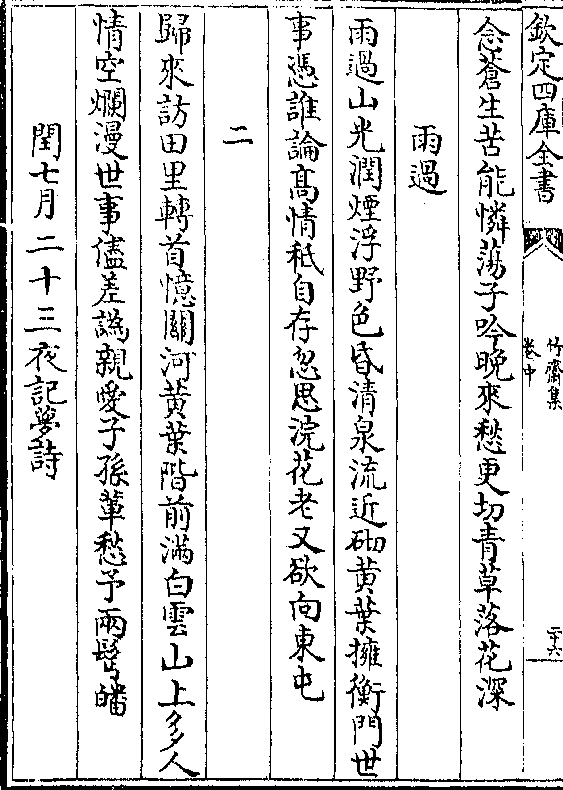 欽定四庫全書
竹齋集
卷中
二十六
念蒼生苦能憐蕩子吟晚來愁更切青草落花深
雨過
雨過山光潤煙浮野色昏清泉流近砌黄葉擁衡門世
事憑誰論髙情秪自存忽思浣花老又欲向東屯
二
歸來訪田里轉首憶關河黄葉階前滿白雲山上多人
情空爛漫世事儘差譌親愛子孫輩愁予兩髩皤
閏七月二十三夜記夢詩